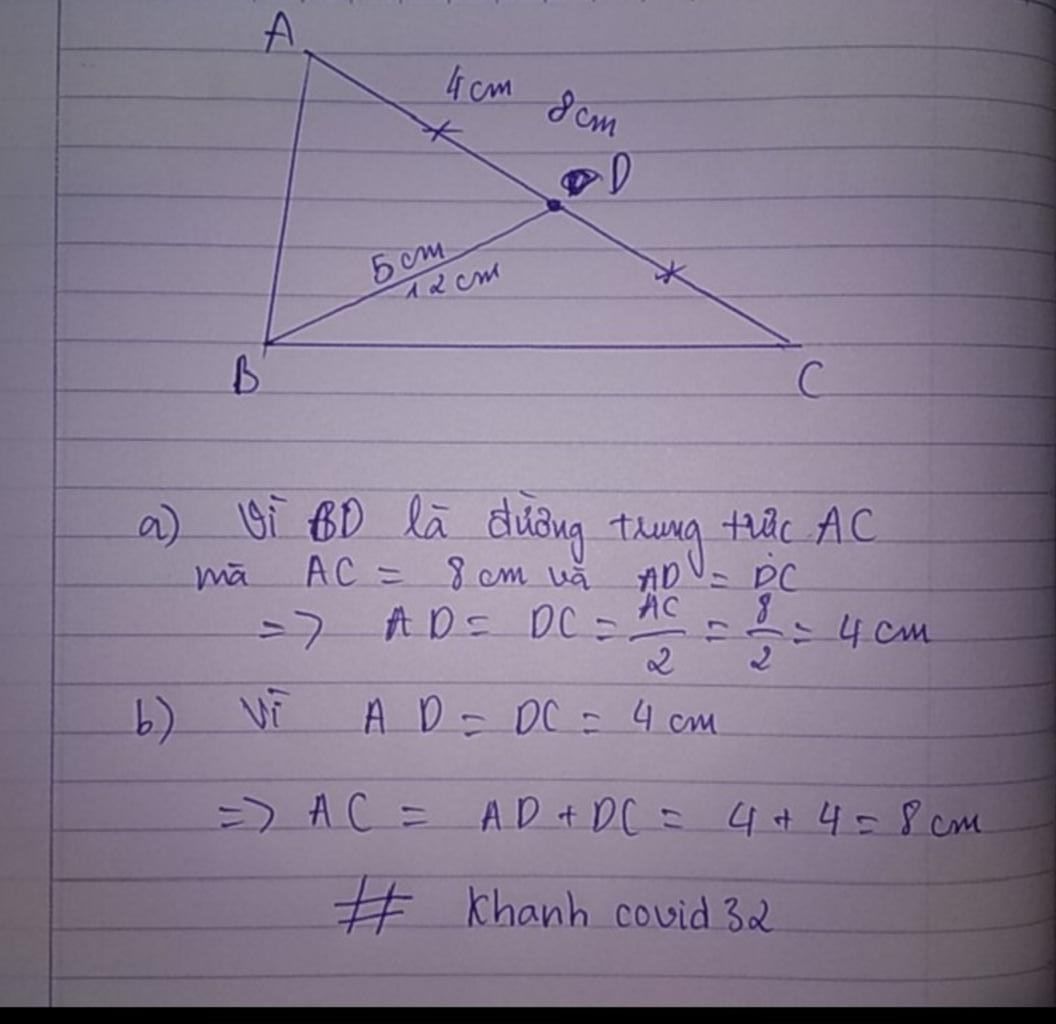 A
4cm
8cm
D
5cm
12cm
B
C
a) Vì BD là đường trung trực AC
mà AC = 8cm và AD = DC
=> AD = DC = AC/2 = 8/2 = 4cm
b) Vì AD = DC = 4cm
=> AC = AD + DC = 4 + 4 = 8cm
# Khanh covid 32